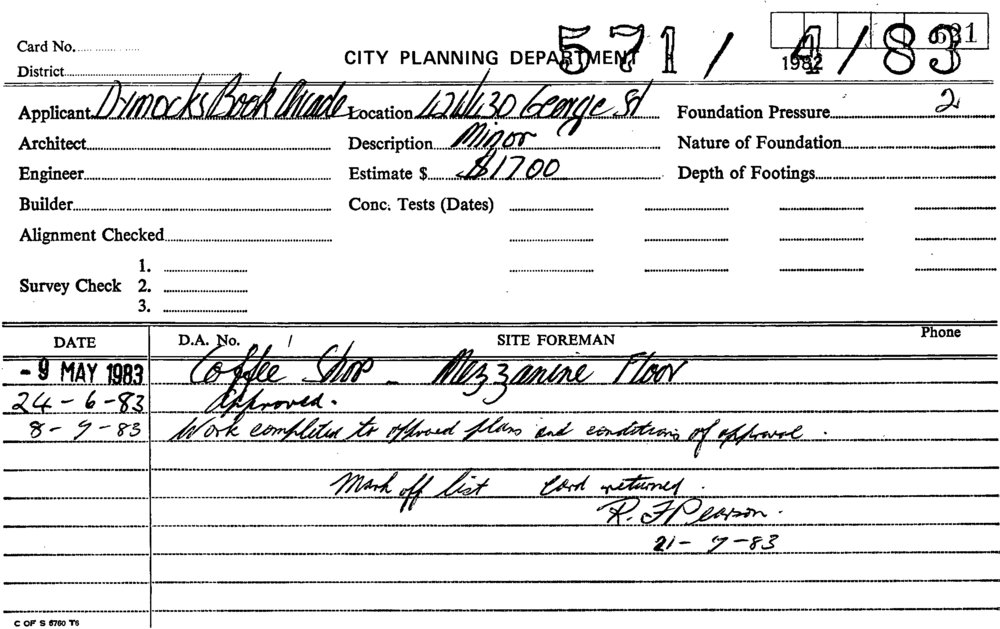 Card No.
CITY PLANNING DEPARTMENT 571/4/83
1982
District
Applicant Dymocks Book Arcade Location 424/430 George St Foundation Pressure 2
Architect Description Minor Nature of Foundation
Engineer Estimate $ $1700 Depth of Footings
Builder Conc. Tests (Dates)
Alignment Checked
1.
Survey Check 2.
3.
DATE D.A. No. SITE FOREMAN Phone
- 9 MAY 1983 Coffee Shop - Mezzanine Floor
24-6-83 Approved.
8-9-83 Work completed to approved plans and conditions of approval.
Mark off list Card returned.
R. F Pearson.
21-9-83
C OF S 6760 T6